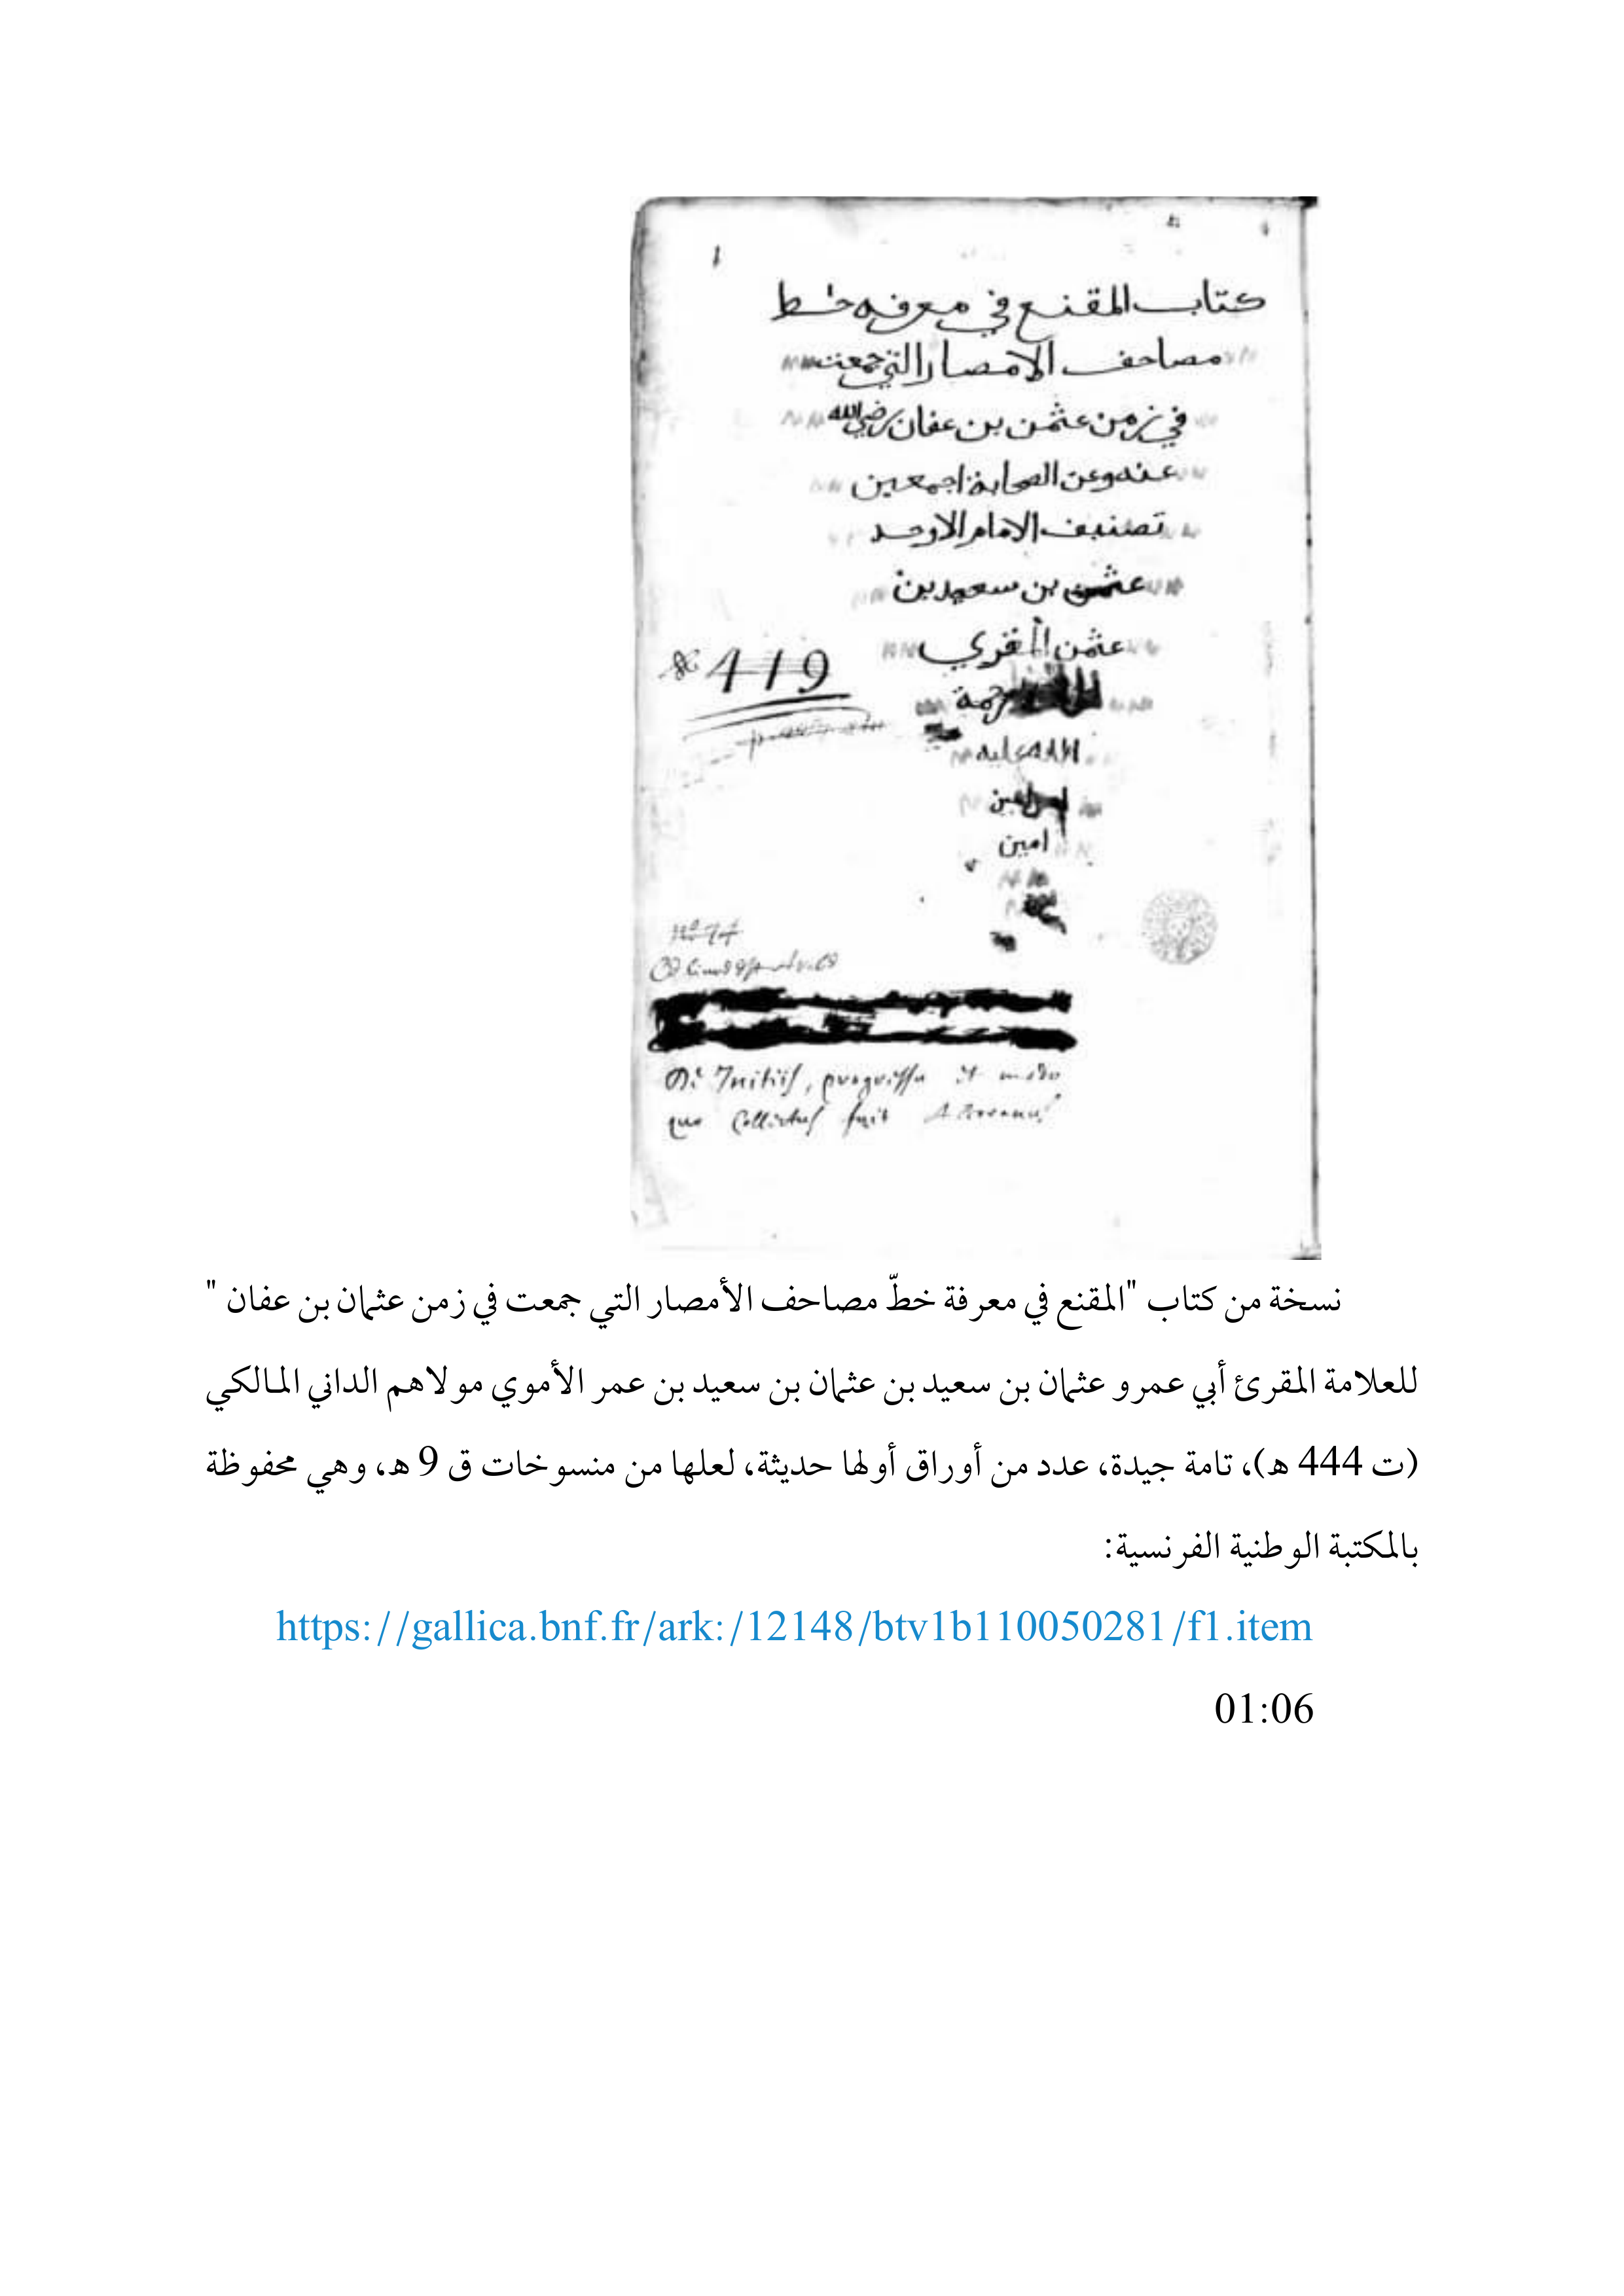 كتاب المقنع في معرفه خط
مصاحف الامصار التي جمعت
في زمن عثمن بن عفان رضي الله
عنه وعن الصحابة اجمعين
تصنيف الامام الاوحد
عثمن بن سعيد بن
عثمن المقري
رحمة
الله عليه
امين
419
De Initiis, progressu et modo
quo Collectus fuit Alcoranus
نسخة من كتاب "المقنع في معرفة خطّ مصاحف الأمصار التي جمعت في زمن عثمان بن عفان "
للعلامة المقرئ أبي عمرو عثمان بن سعيد بن عثمان بن سعيد بن عمر الأموي مولاهم الداني المالكي
(ت 444 ه)، تامة جيدة، عدد من أوراق أولها حديثة، لعلها من منسوخات ق 9 ه، وهي محفوظة
بالمكتبة الوطنية الفرنسية:
https://gallica.bnf.fr/ark:/12148/btv1b110050281/f1.item
01:06